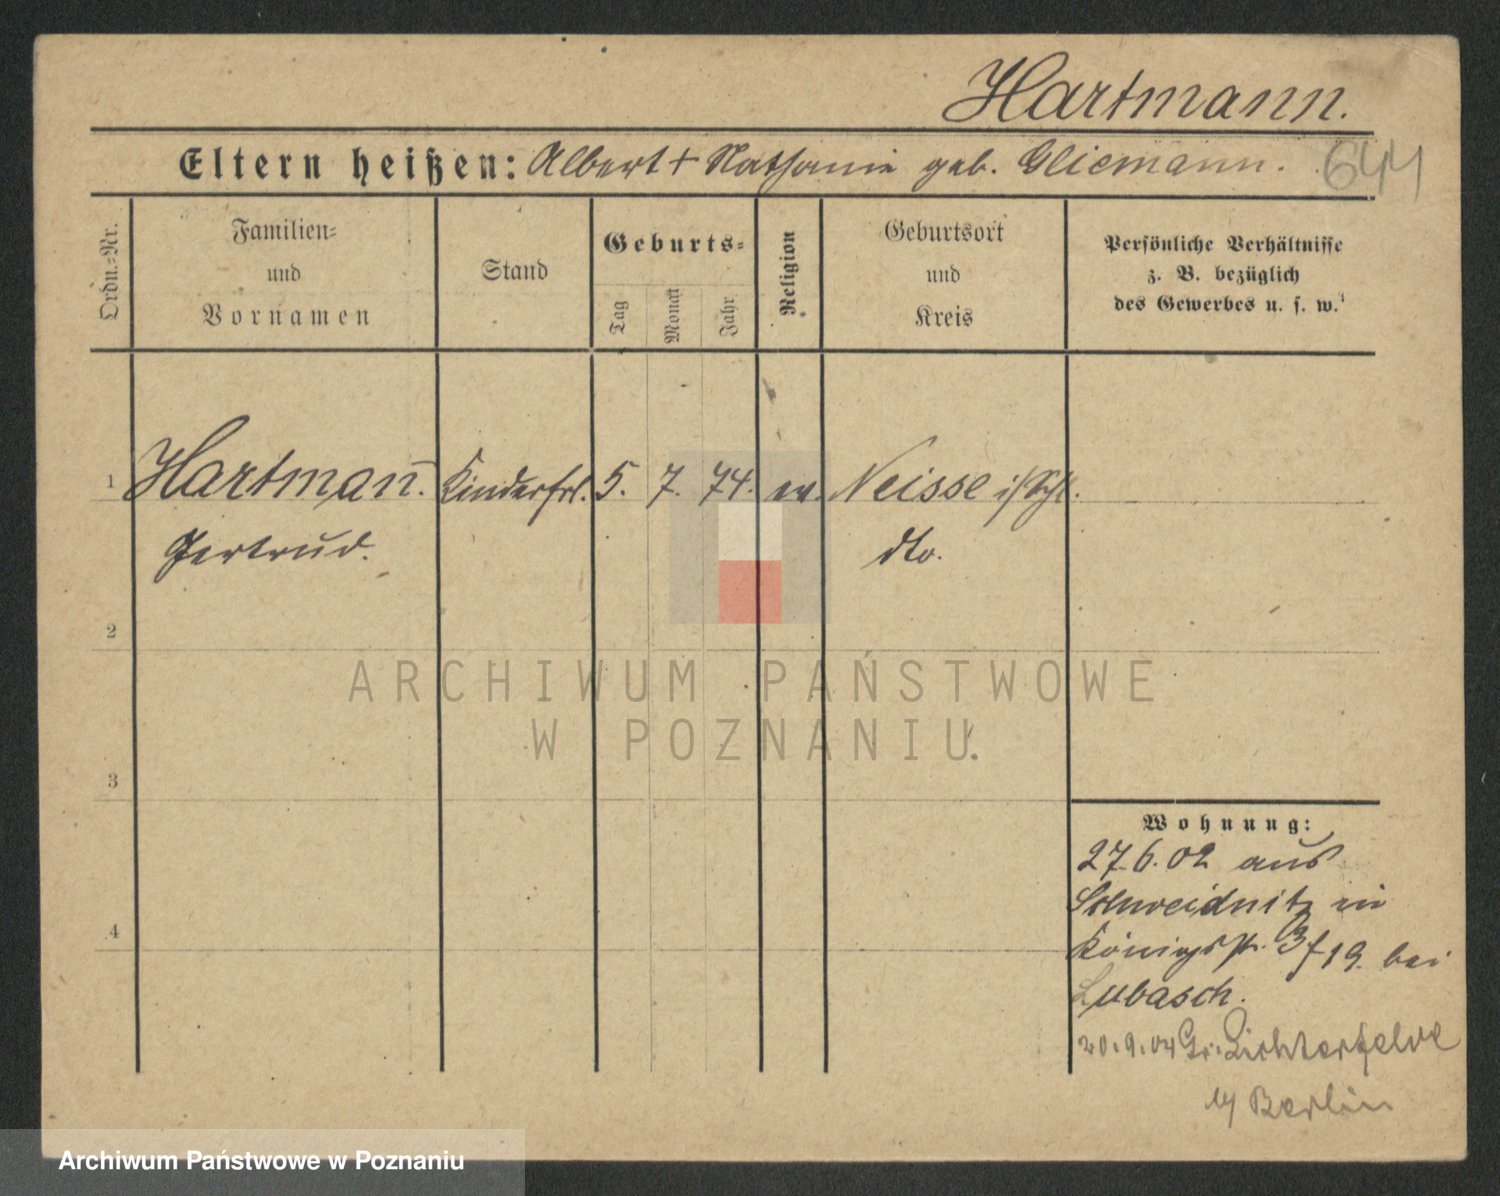 Hartmann.
Eltern heißen: Albert + Nathanie geb. Gliemann. 644
Ordn.-Nr.
Familien-
und
Vornamen
Stand
Geburts-
Tag
Monat
Jahr
Religion
Geburtsort
und
Kreis
Persönliche Verhältnisse
z. B. bezüglich
des Gewerbes u. s. w.
1 Hartman̄. Kinderfrl. 5. 7. 74. ev. Neisse i/Schl.
Gertrud. dto.
2
3
4
ARCHIWUM PAŃSTWOWE
W POZNANIU
Wohnung:
27.6.02 aus
Schweidnitz in
Königspl. 19. bei
Lubasch.
20.9.04 Gr. Lichterfelde
b/ Berlin
Archiwum Państwowe w Poznaniu